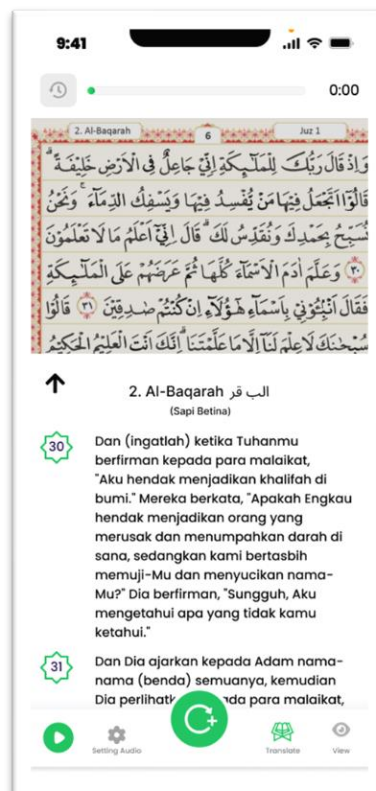 9:41
0:00
2. Al-Baqarah
6
Juz 1
وَاِذْ قَالَ رَبُّكَ لِلْمَلٰۤىِٕكَةِ اِنِّيْ جَاعِلٌ فِى الْاَرْضِ خَلِيْفَةً ۗ
قَالُوْٓا اَتَجْعَلُ فِيْهَا مَنْ يُّفْسِدُ فِيْهَا وَيَسْفِكُ الدِّمَاۤءَۚ وَنَحْنُ
نُسَبِّحُ بِحَمْدِكَ وَنُقَدِّسُ لَكَ ۗ قَالَ اِنِّيْٓ اَعْلَمُ مَا لَا تَعْلَمُوْنَ
٣٠ وَعَلَّمَ اٰدَمَ الْاَسْمَاۤءَ كُلَّهَا ثُمَّ عَرَضَهُمْ عَلَى الْمَلٰۤىِٕكَةِ
فَقَالَ اَنْۢبِـُٔوْنِيْ بِاَسْمَاۤءِ هٰٓؤُلَاۤءِ اِنْ كُنْتُمْ صٰدِقِيْنَ ٣١ قَالُوْا
سُبْحٰنَكَ لَا عِلْمَ لَنَآ اِلَّا مَا عَلَّمْتَنَا ۗاِنَّكَ اَنْتَ الْعَلِيْمُ الْحَكِيْمُ
2. Al-Baqarah الب قر
(Sapi Betina)
30 Dan (ingatlah) ketika Tuhanmu
berfirman kepada para malaikat,
"Aku hendak menjadikan khalifah di
bumi." Mereka berkata, "Apakah Engkau
hendak menjadikan orang yang
merusak dan menumpahkan darah di
sana, sedangkan kami bertasbih
memuji-Mu dan menyucikan nama-
Mu?" Dia berfirman, "Sungguh, Aku
mengetahui apa yang tidak kamu
ketahui."
31 Dan Dia ajarkan kepada Adam nama-
nama (benda) semuanya, kemudian
Dia para malaikat,
Setting Audio
Translate
View